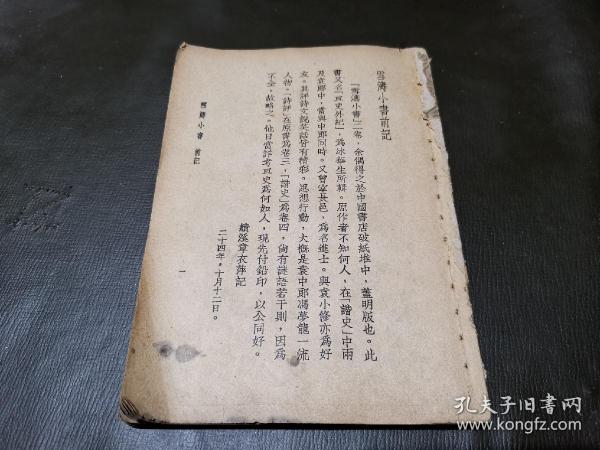 雪濤小書前記
「雪濤小書」二卷，余偶得之於中國書店破紙堆中，蓋明版也。此
書又名「亘史外紀」，爲冰華生所輯。原作者不知何人，在「諧史」中兩
及袁中郎，當與中郎同時。又曾宰長邑，爲名進士。與袁小修亦爲好
友。其評詩文說笑話皆有精彩。思想行動，大概是袁中郎馮夢龍一流
人物。「詩評」在原書爲卷三，「諧史」爲卷四，尙有謎語若干則，因爲
不全，故略之。他日當詳考亘史爲何如人，現先付鉛印，以公同好。
績溪章衣萍記
二十四年，十月十二日。
雪濤小書 前記
一
孔夫子旧书网
www.kongfz.com